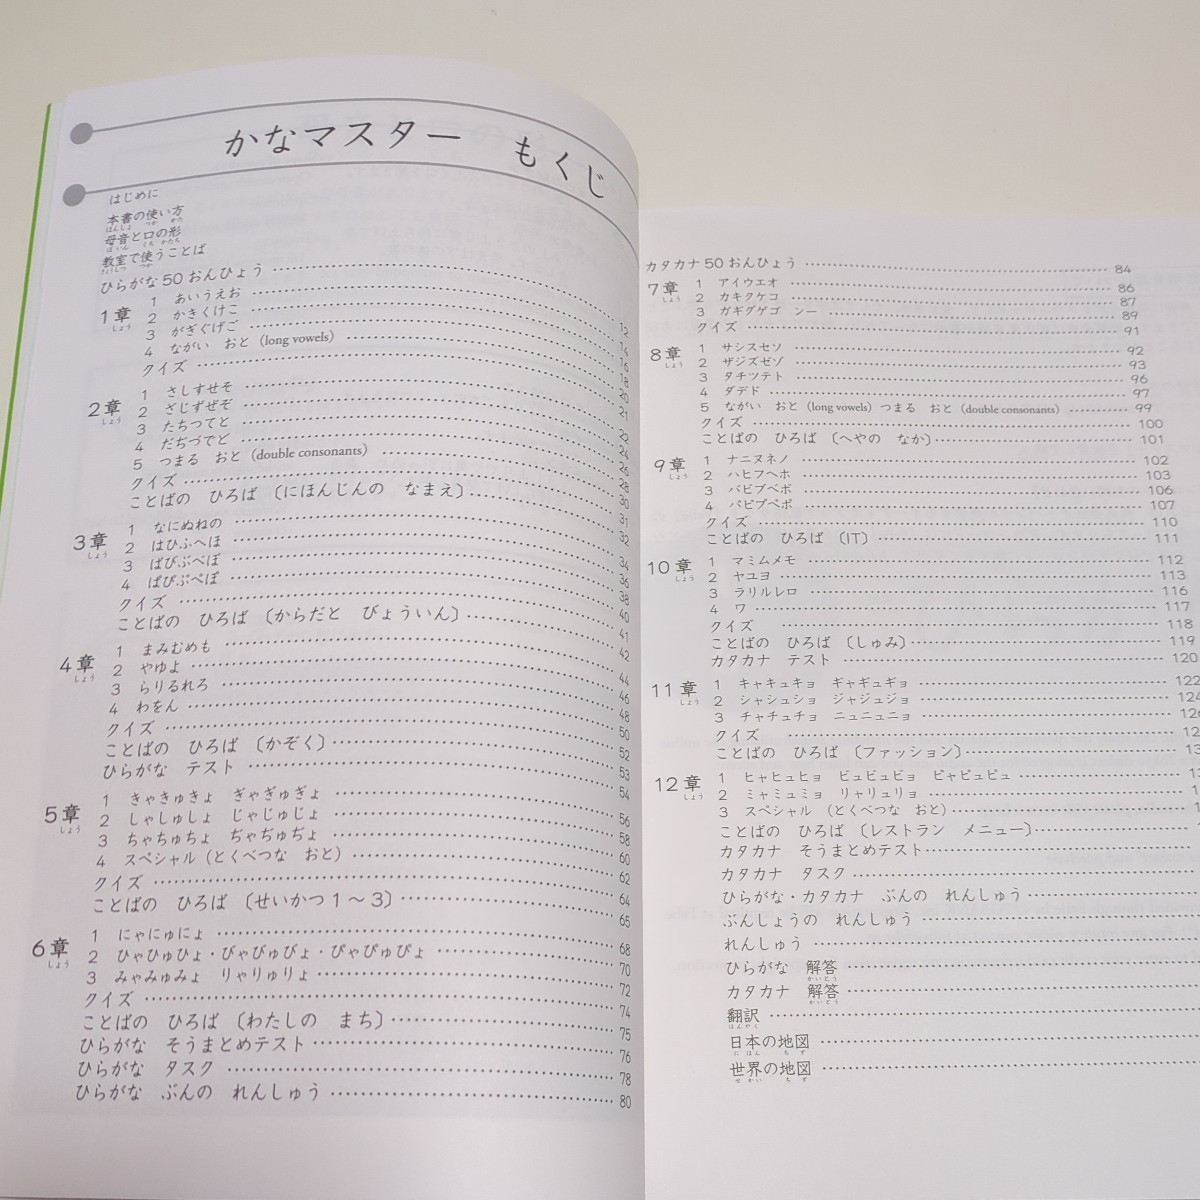 かなマスター　もくじ
はじめに
本書の使い方
ほんしょ つか かた
母音と口の形
ぼいん くち かたち
教室で使うことば
きょうしつ つか
ひらがな50おんひょう …… 12
1章 1 あいうえお …… 14
しょう
2 かきくけこ …… 16
3 がぎぐげご …… 18
4 ながい　おと（long vowels） …… 20
クイズ …… 21
2章 1 さしすせそ …… 22
しょう
2 ざじずぜぞ …… 24
3 たちつてと …… 26
4 だぢづでど …… 28
5 つまる　おと（double consonants） …… 30
クイズ …… 31
ことばの　ひろば〔にほんじんの　なまえ〕 …… 32
3章 1 なにぬねの …… 34
しょう
2 はひふへほ …… 36
3 ばびぶべぼ …… 38
4 ぱぴぷぺぽ …… 40
クイズ …… 41
ことばの　ひろば〔からだと　びょういん〕 …… 42
4章 1 まみむめも …… 44
しょう
2 やゆよ …… 46
3 らりるれろ …… 48
4 わをん …… 50
クイズ …… 52
ことばの　ひろば〔かぞく〕 …… 53
ひらがな　テスト …… 54
5章 1 きゃきゅきょ　ぎゃぎゅぎょ …… 56
しょう
2 しゃしゅしょ　じゃじゅじょ …… 58
3 ちゃちゅちょ　ぢゃぢゅぢょ …… 60
4 スペシャル（とくべつな　おと） …… 62
クイズ …… 64
ことばの　ひろば〔せいかつ1～3〕 …… 65
6章 1 にゃにゅにょ …… 68
しょう
2 ひゃひゅひょ・びゃびゅびょ・ぴゃぴゅぴょ …… 70
3 みゃみゅみょ　りゃりゅりょ …… 72
クイズ …… 74
ことばの　ひろば〔わたしの　まち〕 …… 75
ひらがな　そうまとめテスト …… 76
ひらがな　タスク …… 78
ひらがな　ぶんの　れんしゅう …… 80
カタカナ50おんひょう …… 84
7章 1 アイウエオ …… 86
しょう
2 カキクケコ …… 87
3 ガギグゲゴ　ンー …… 89
クイズ …… 91
8章 1 サシスセソ …… 92
しょう
2 ザジズゼゾ …… 93
3 タチツテト …… 96
4 ダデド …… 97
5 ながい　おと（long vowels）つまる　おと（double consonants） …… 99
クイズ …… 100
ことばの　ひろば〔へやの　なか〕 …… 101
9章 1 ナニヌネノ …… 102
しょう
2 ハヒフヘホ …… 103
3 バビブベボ …… 106
4 パピプペポ …… 107
クイズ …… 110
ことばの　ひろば〔IT〕 …… 111
10章 1 マミムメモ …… 112
しょう
2 ヤユヨ …… 113
3 ラリルレロ …… 116
4 ワ …… 117
クイズ …… 118
ことばの　ひろば〔しゅみ〕 …… 119
カタカナ　テスト …… 120
11章 1 キャキュキョ　ギャギュギョ …… 122
しょう
2 シャシュショ　ジャジュジョ …… 124
3 チャチュチョ　ニュニュニョ …… 126
クイズ ……
ことばの　ひろば〔ファッション〕 ……
12章 1 ヒャヒュヒョ　ビュビュビョ　ピャピュピュ ……
しょう
2 ミャミュミョ　リャリュリョ ……
3 スペシャル（とくべつな　おと） ……
ことばの　ひろば〔レストラン　メニュー〕 ……
カタカナ　そうまとめテスト ……
カタカナ　タスク ……
ひらがな・カタカナ　ぶんの　れんしゅう ……
ぶんしょうの　れんしゅう ……
れんしゅう ……
ひらがな　解答 ……
かいとう
カタカナ　解答 ……
かいとう
翻訳 ……
ほんやく
日本の地図 ……
にほん ちず
世界の地図 ……
せかい ちず